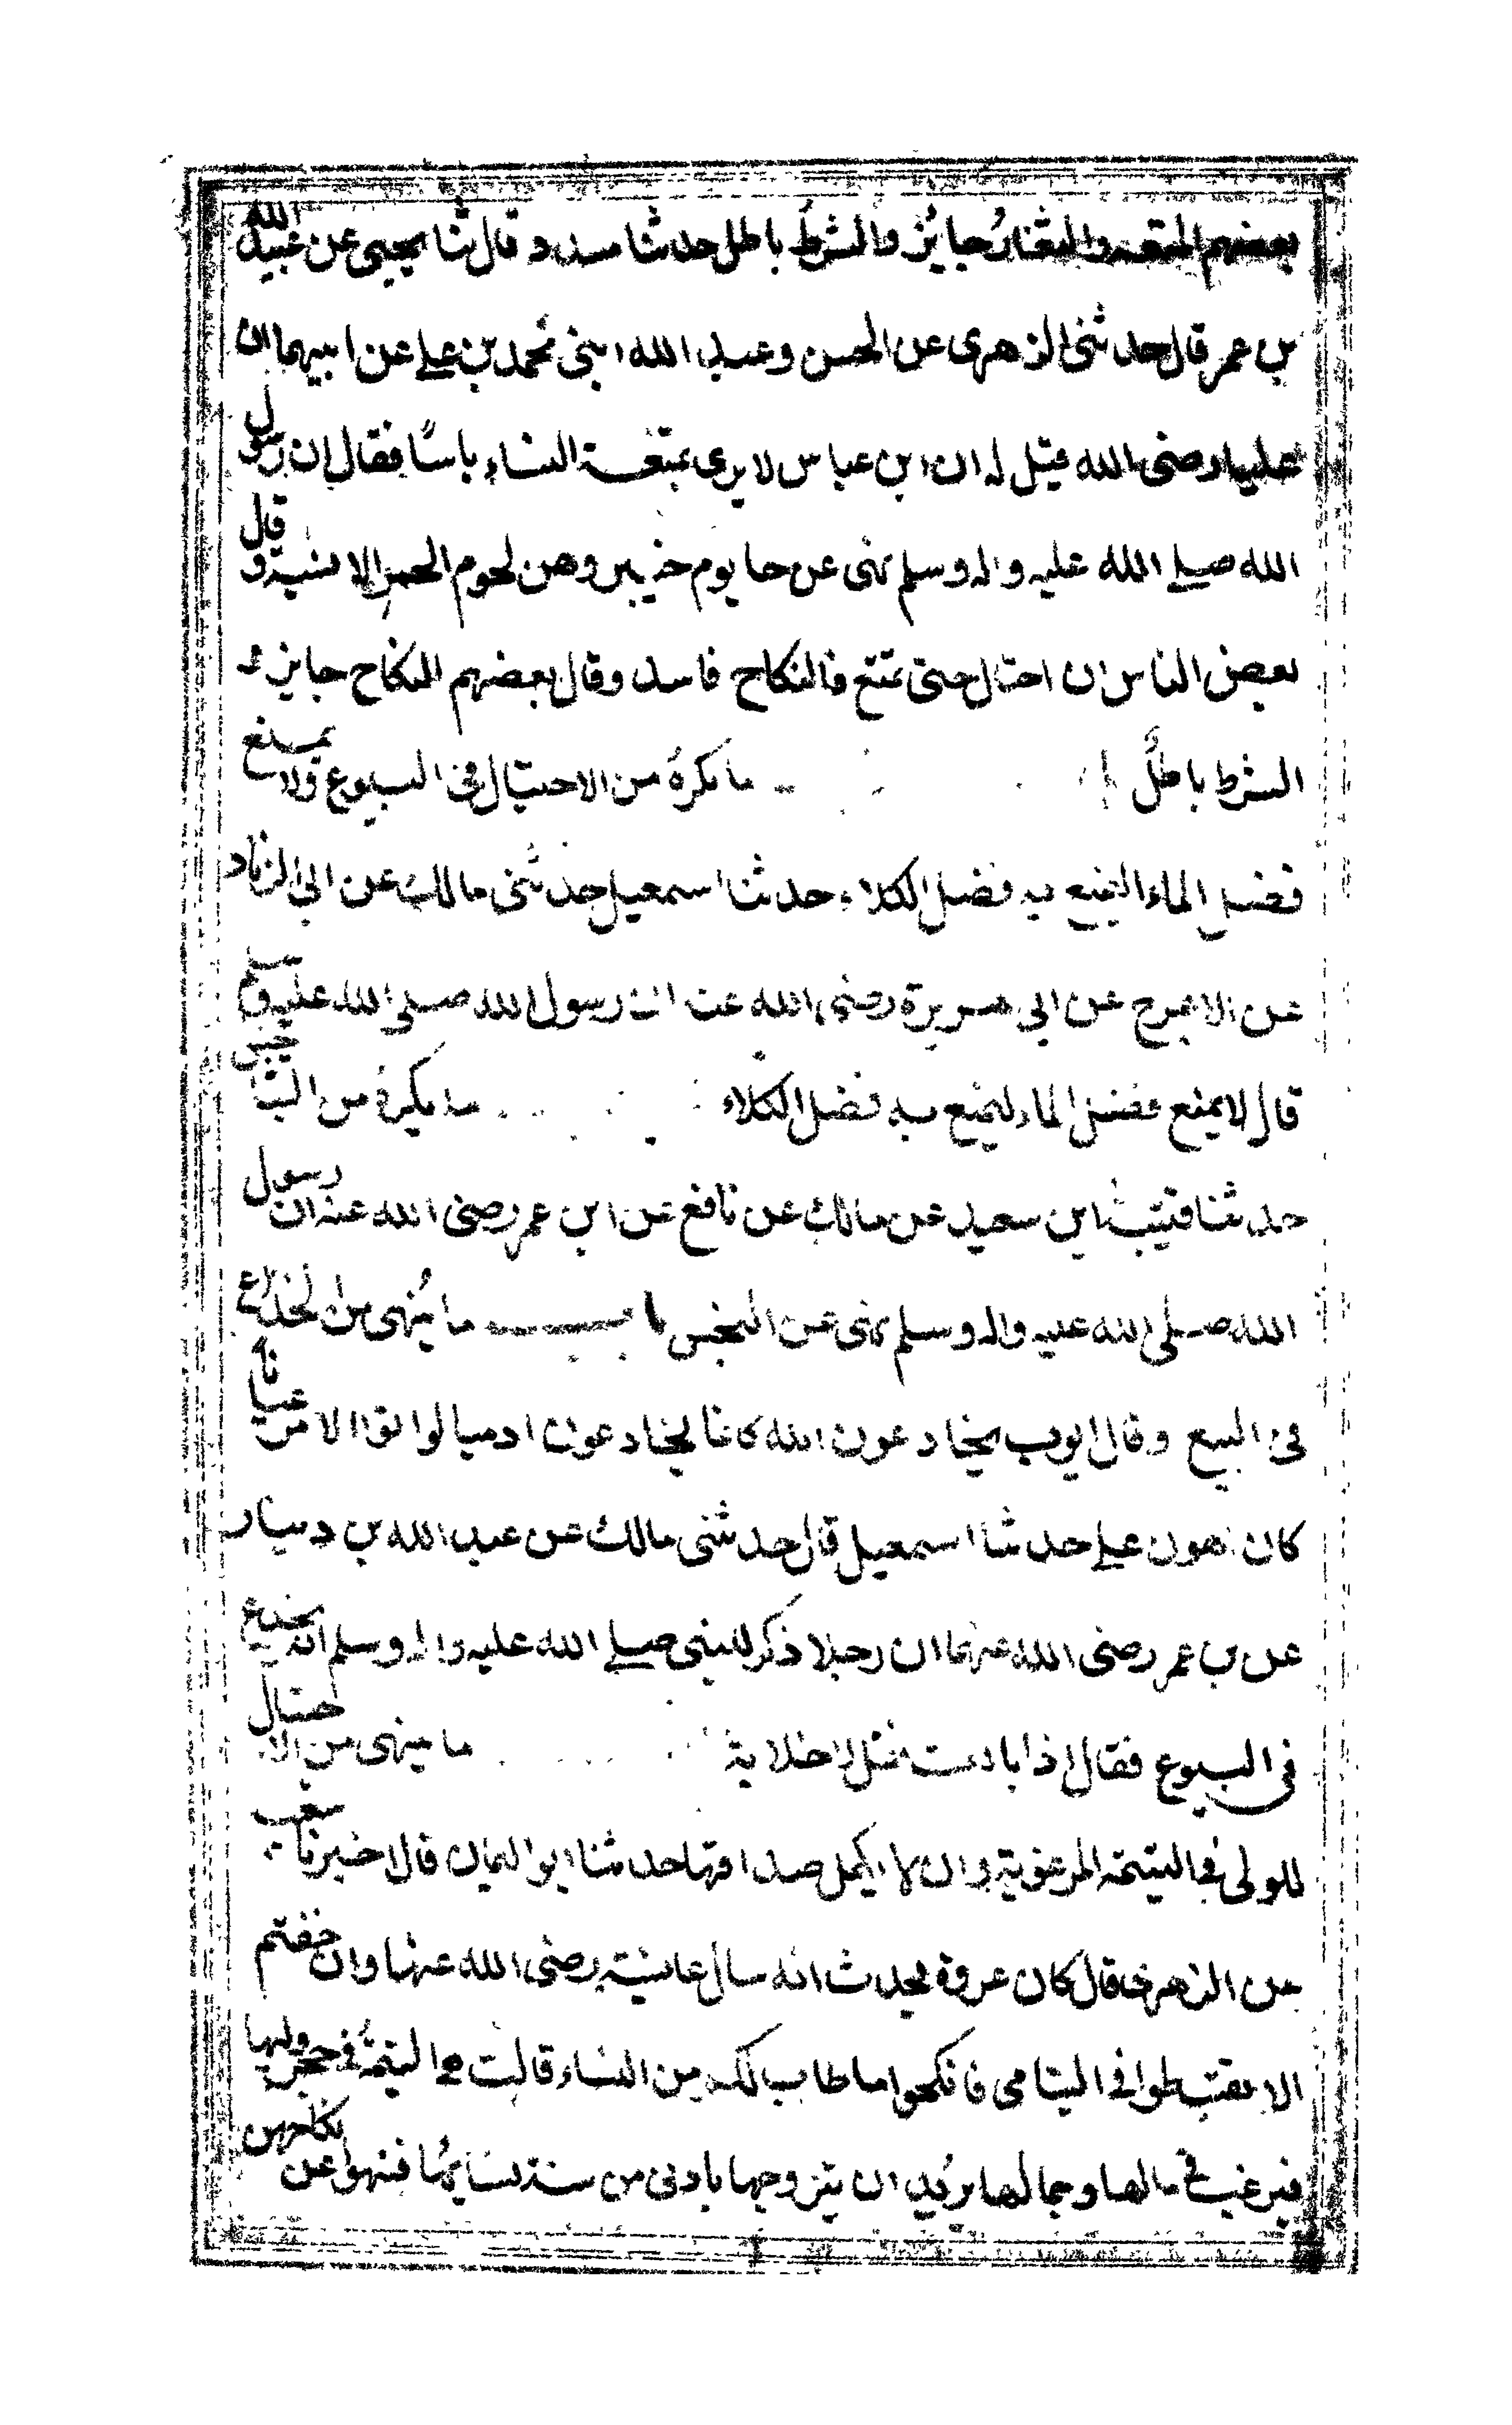 بعضهم المتعه والشغار جايز والشرط باطل حدثنا مسدد قال ثنا يحيى عن عبيد الله
بن عمر قال حدثنى الزهرى عن الحسن وعبد الله ابنى محمد بن على عن ابيهما ان
عليا رضى الله قيل له ان ابن عباس لا يرى بمتعة النساء باسًا فقال ان رسول
الله صلى الله عليه واله وسلم نهى عن حا يوم خيبر وعن لحوم الحمر الانسية وقال
بعض الناس ان احتال حتى تمتع فالنكاح فاسد وقال بعضهم النكاح جايز و
الشرط باطلٌ ما يكره من الاحتيال فى البيوع ولا يمنع
فضل الماء ليمنع به فضل الكلاء حدثنا اسمعيل حدثنى مالك عن ابى الزناد
عن الاعرج عن ابى هريرة رضى الله عنه ان رسول الله صلى الله عليه وسلم
قال لا يمنع فضل الماء ليمنع به فضل الكلاء ما يكره من التناجش
حدثنا قتيبة ابن سعيد عن مالك عن نافع عن ابن عمر رضى الله عنه ان رسول
الله صلى الله عليه واله وسلم نهى عن النجش باب ما يُنهى من الخداع
فى البيع وقال ايوب يخادعون الله كانما يخادعون ادميا لو اتوا الامر عيانًا
كان اهون على حدثنا اسمعيل قال حدثنى مالك عن عبد الله بن دينار
عن بن عمر رضى الله عنهما ان رجلا ذكر للنبى صلى الله عليه واله وسلم انه يخدع
فى البيوع فقال اذا بايعت فقل لا خلابة ما ينهى من الاحتيال
للولى فى اليتيمة المرغوبة وان لا يكمل صداقها حدثنا ابو اليمان قال اخبرنا شعيب
عن الزهرى قال كان عروة يحدث انه سال عائشة رضى الله عنها وان خفتم
الا تقسطوا فى اليتامى فانكحوا ما طاب لكم من النساء قالت هى اليتيمة فى حجر وليها
فيرغب فى مالها وجمالها يريد ان يتزوجها بادنى من سنة نسايها فنهوا عن نكاحهن